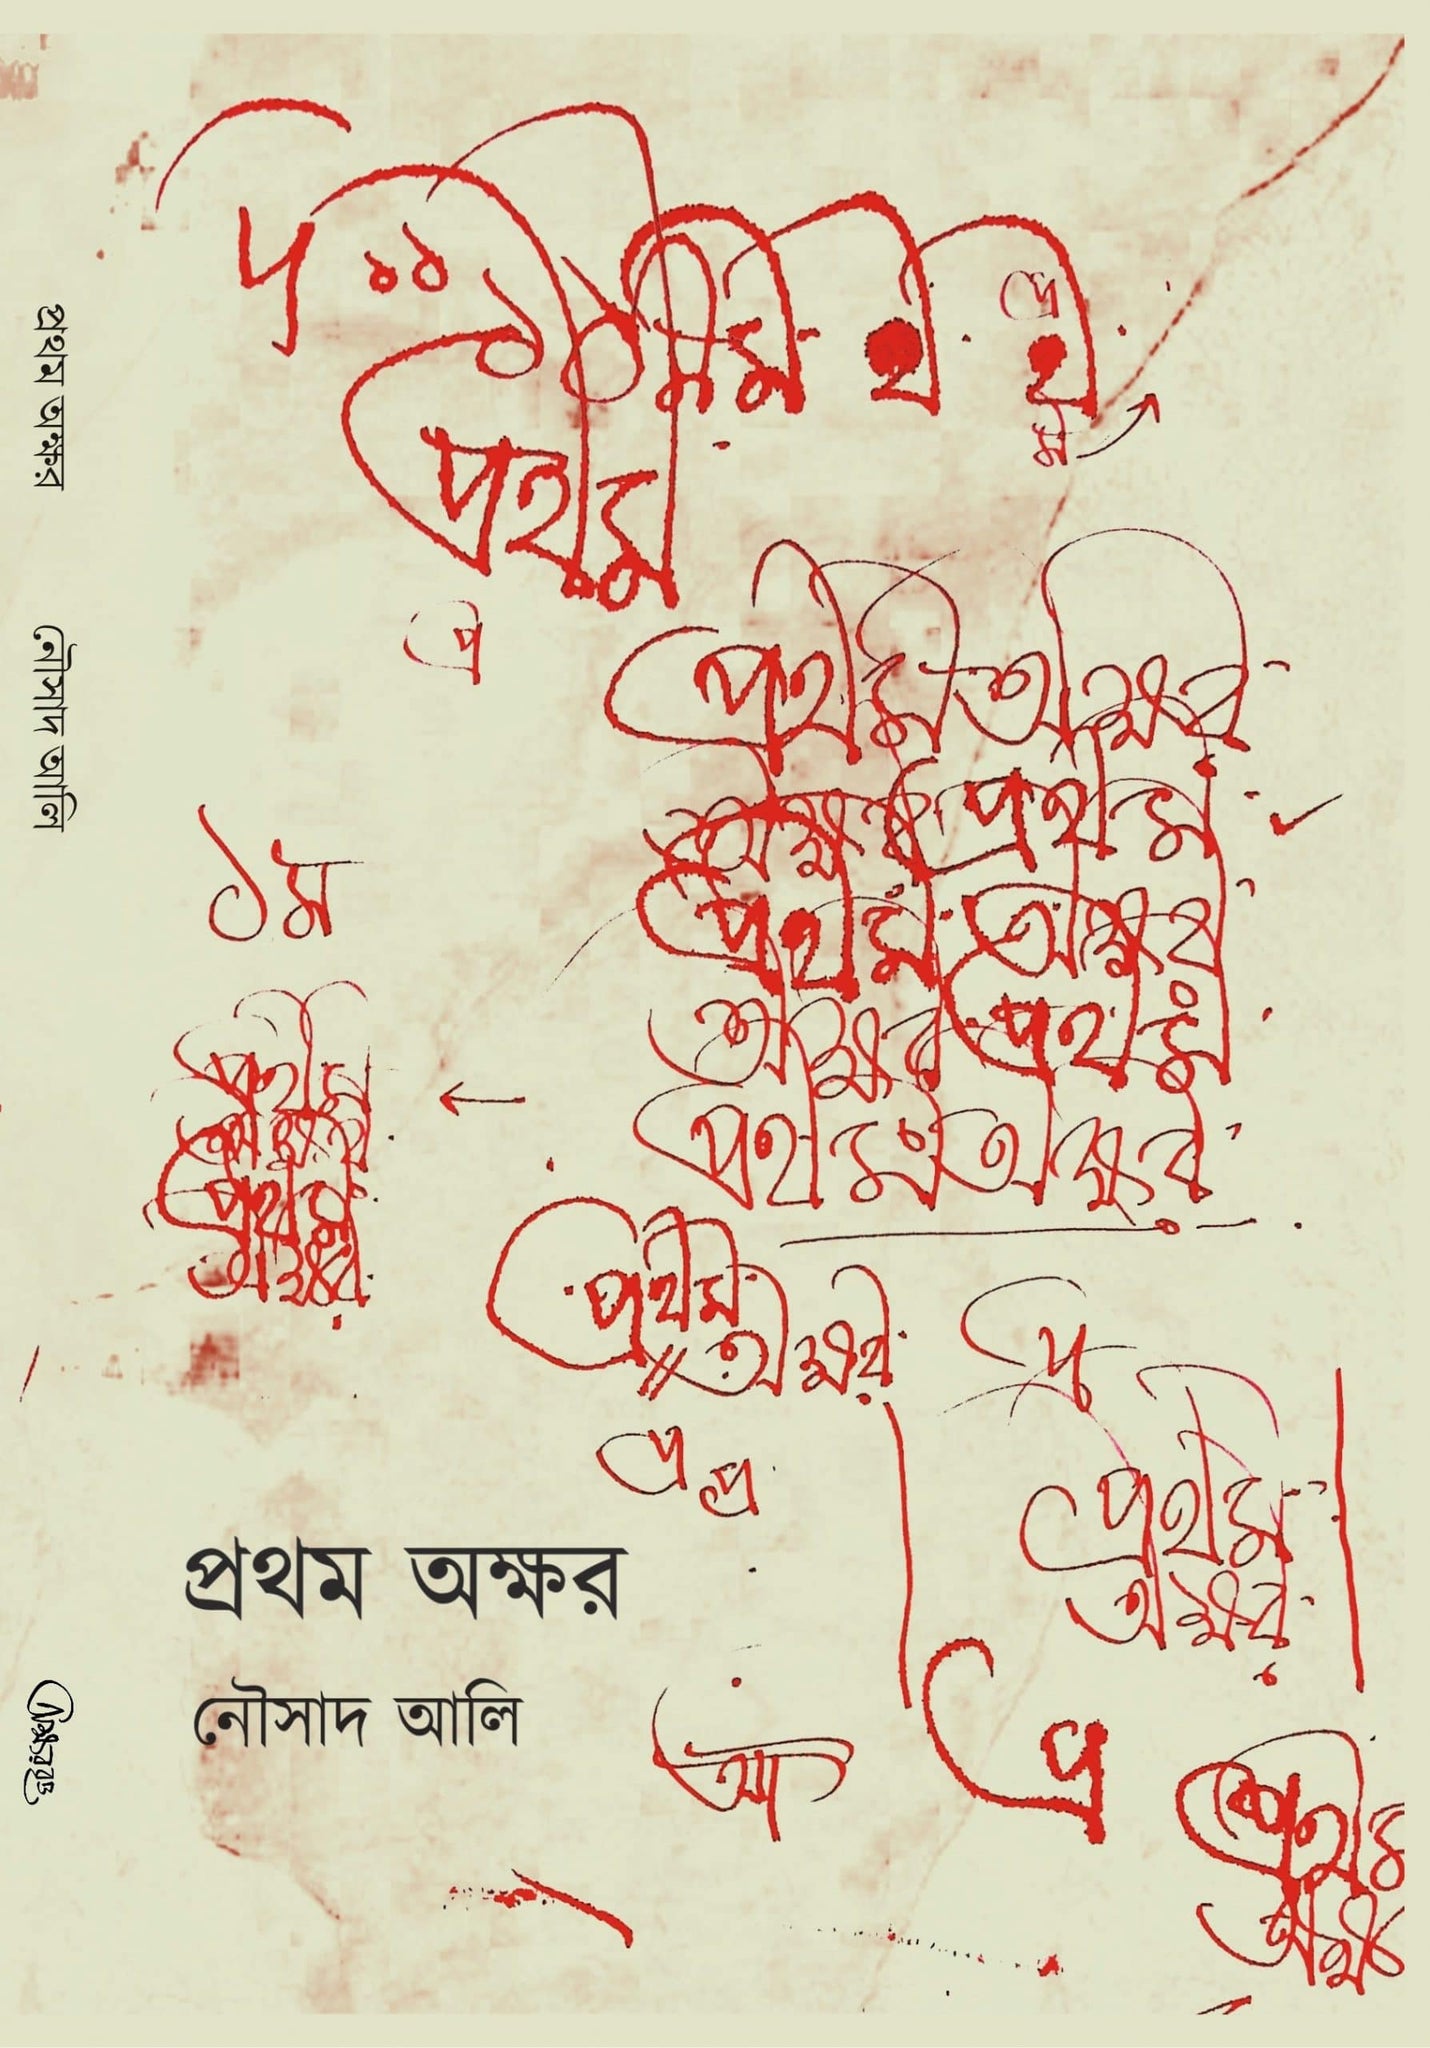 প্রথম
প্র
প্র
ম
প্রথম অক্ষর
অক্ষর প্রথম
প্রথম অক্ষর
অক্ষর প্রথম
প্রথম অক্ষর
১ম
প্রথম
অক্ষর
প্রথম
অক্ষর
প্রথম
অক্ষর
প্র
প্র প্র
প্রথম
অক্ষর
প্র
প্রথম অক্ষর
নৌসাদ আলি
প্রথম অক্ষর
নৌসাদ আলি